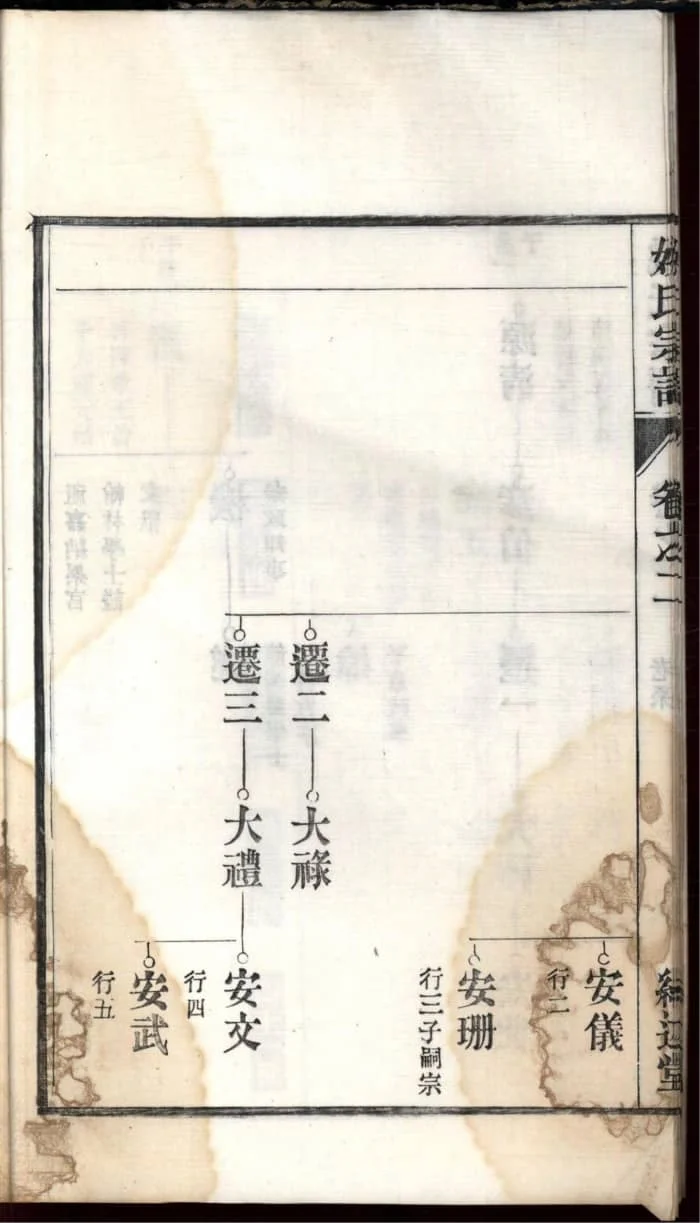 姚氏宗譜
卷之二
安儀
行二
安珊
行三子嗣宗
遷二
大祿
遷三
大禮
安文
行四
安武
行五